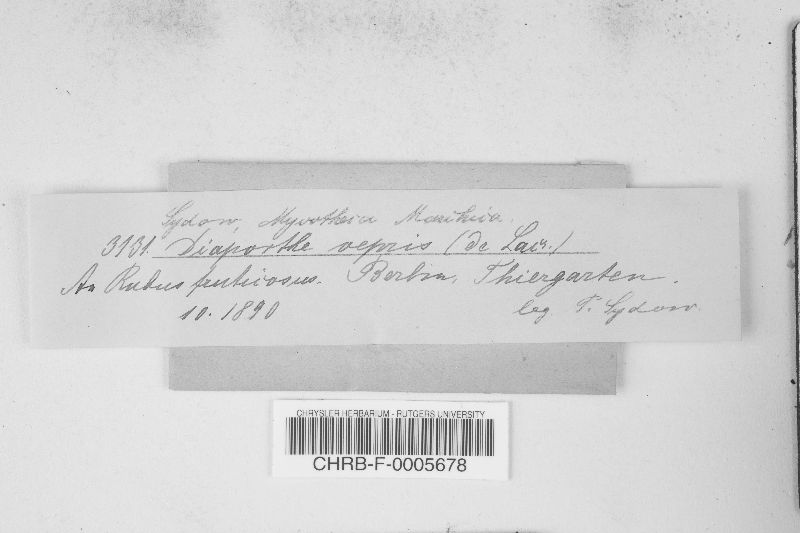 Sydow, Mycotheca Marchica.
3131. Diaporthe vepris (de Lacr.)
An Rubus fruticosus. Berlin, Thiergarten.
10. 1890 leg. P. Sydow.
CHRYSLER HERBARIUM - RUTGERS UNIVERSITY
CHRB-F-0005678